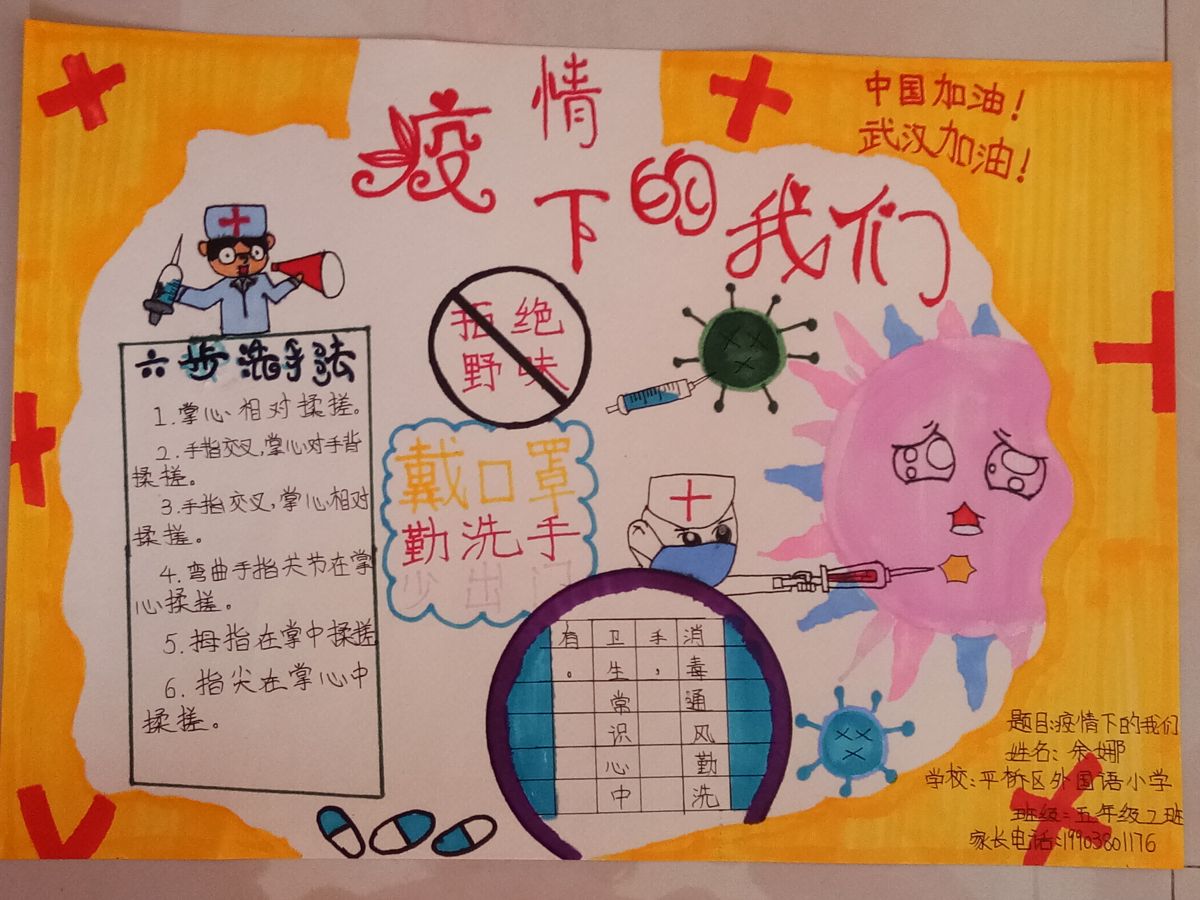 疫情下的我们
中国加油！
武汉加油！
拒绝
野味
六步洗手法
1.掌心相对揉搓。
2.手指交叉,掌心对手背
揉搓。
3.手指交叉,掌心相对
揉搓。
4.弯曲手指关节在掌
心揉搓。
5.拇指在掌中揉搓
6.指尖在掌心中
揉搓。
戴口罩
勤洗手
少出门
消毒通风勤洗
手，
卫生常识心中
有。
题目:疫情下的我们
姓名:余娜
学校:平桥区外国语小学
班级:五年级2班
家长电话:19903801176